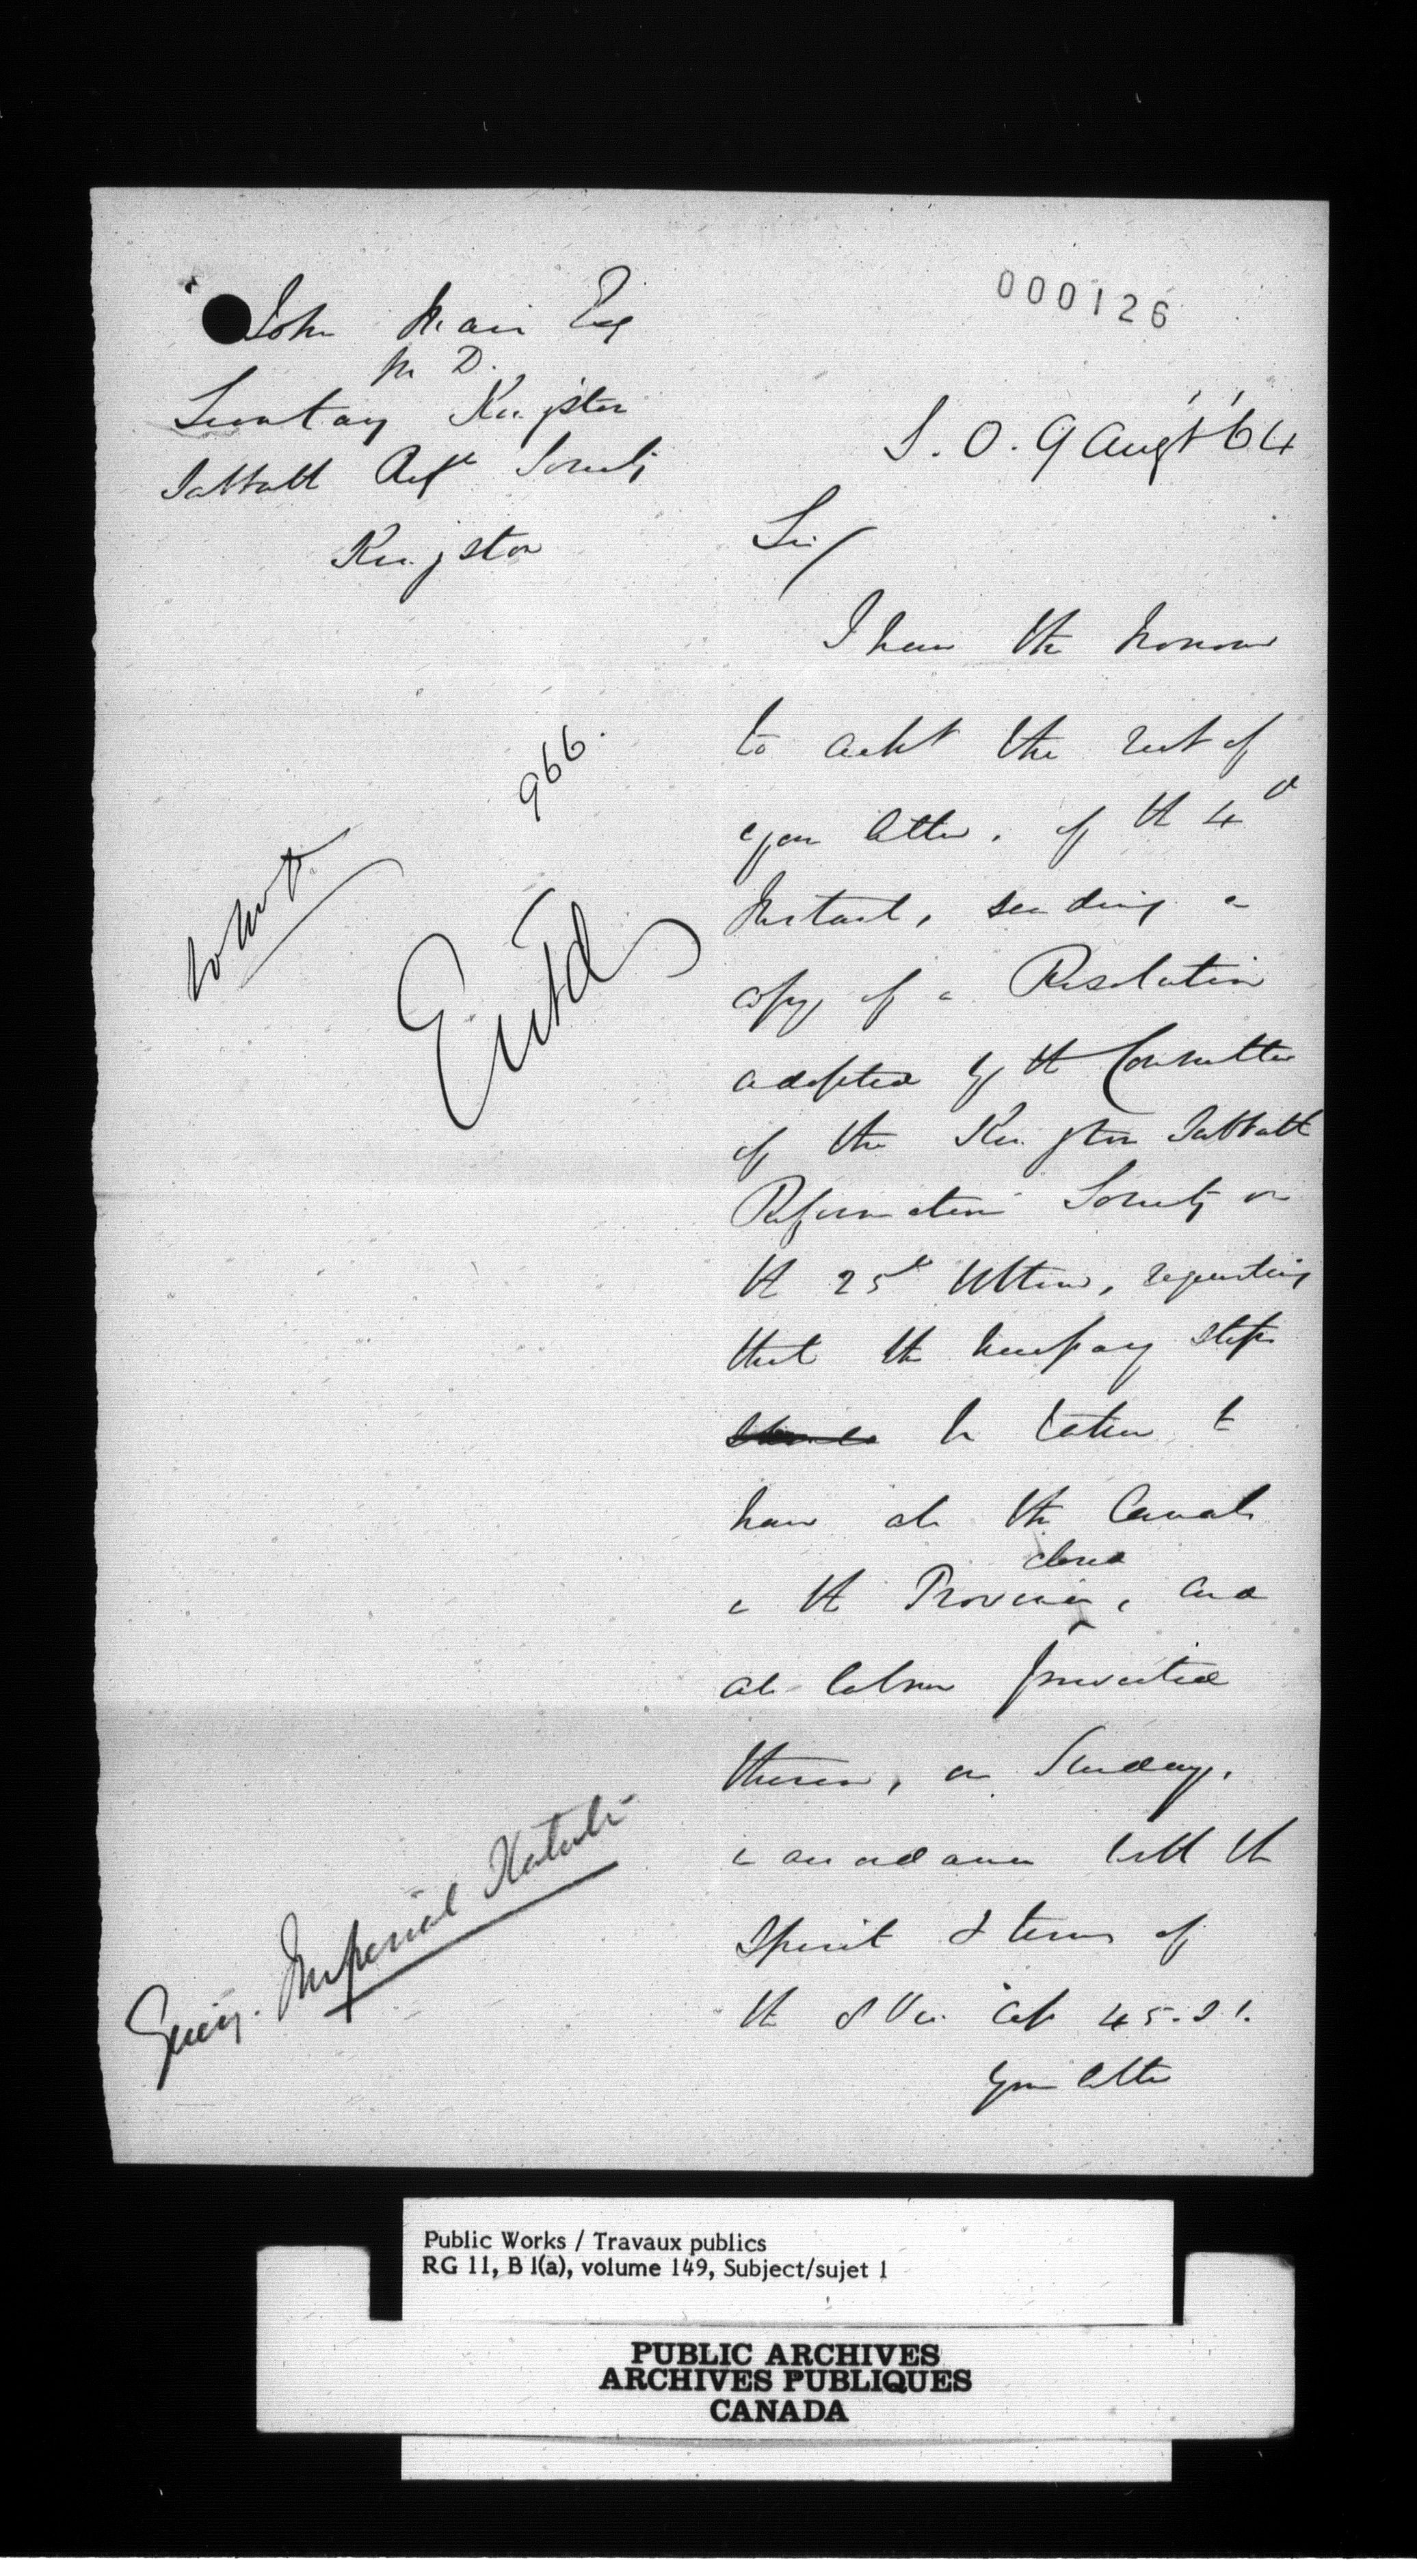 000126
John Mair Esq
M D.
Secretary Kingston
Sabbath Ref Society
Kingston
S. O. 9 Augt '64
Sir/
I have the honour
to ackt the rect of
your letter, of the 4th
Instant, sending a
copy of a Resolution
adopted by the Committee
of the Kingston Sabbath
Reformation Society on
the 25th Ultimo, requesting
that the necessary steps
be taken to
have all the Canals
closed
in the Province, and
all labour prevented
thereon, on Sunday,
in accordance with the
spirit & terms of
the 8 Vic. Cap 45. S1.
Your letter
966.
Entd
Imperial Statute
Public Works / Travaux publics
RG 11, B 1(a), volume 149, Subject/sujet 1
PUBLIC ARCHIVES
ARCHIVES PUBLIQUES
CANADA